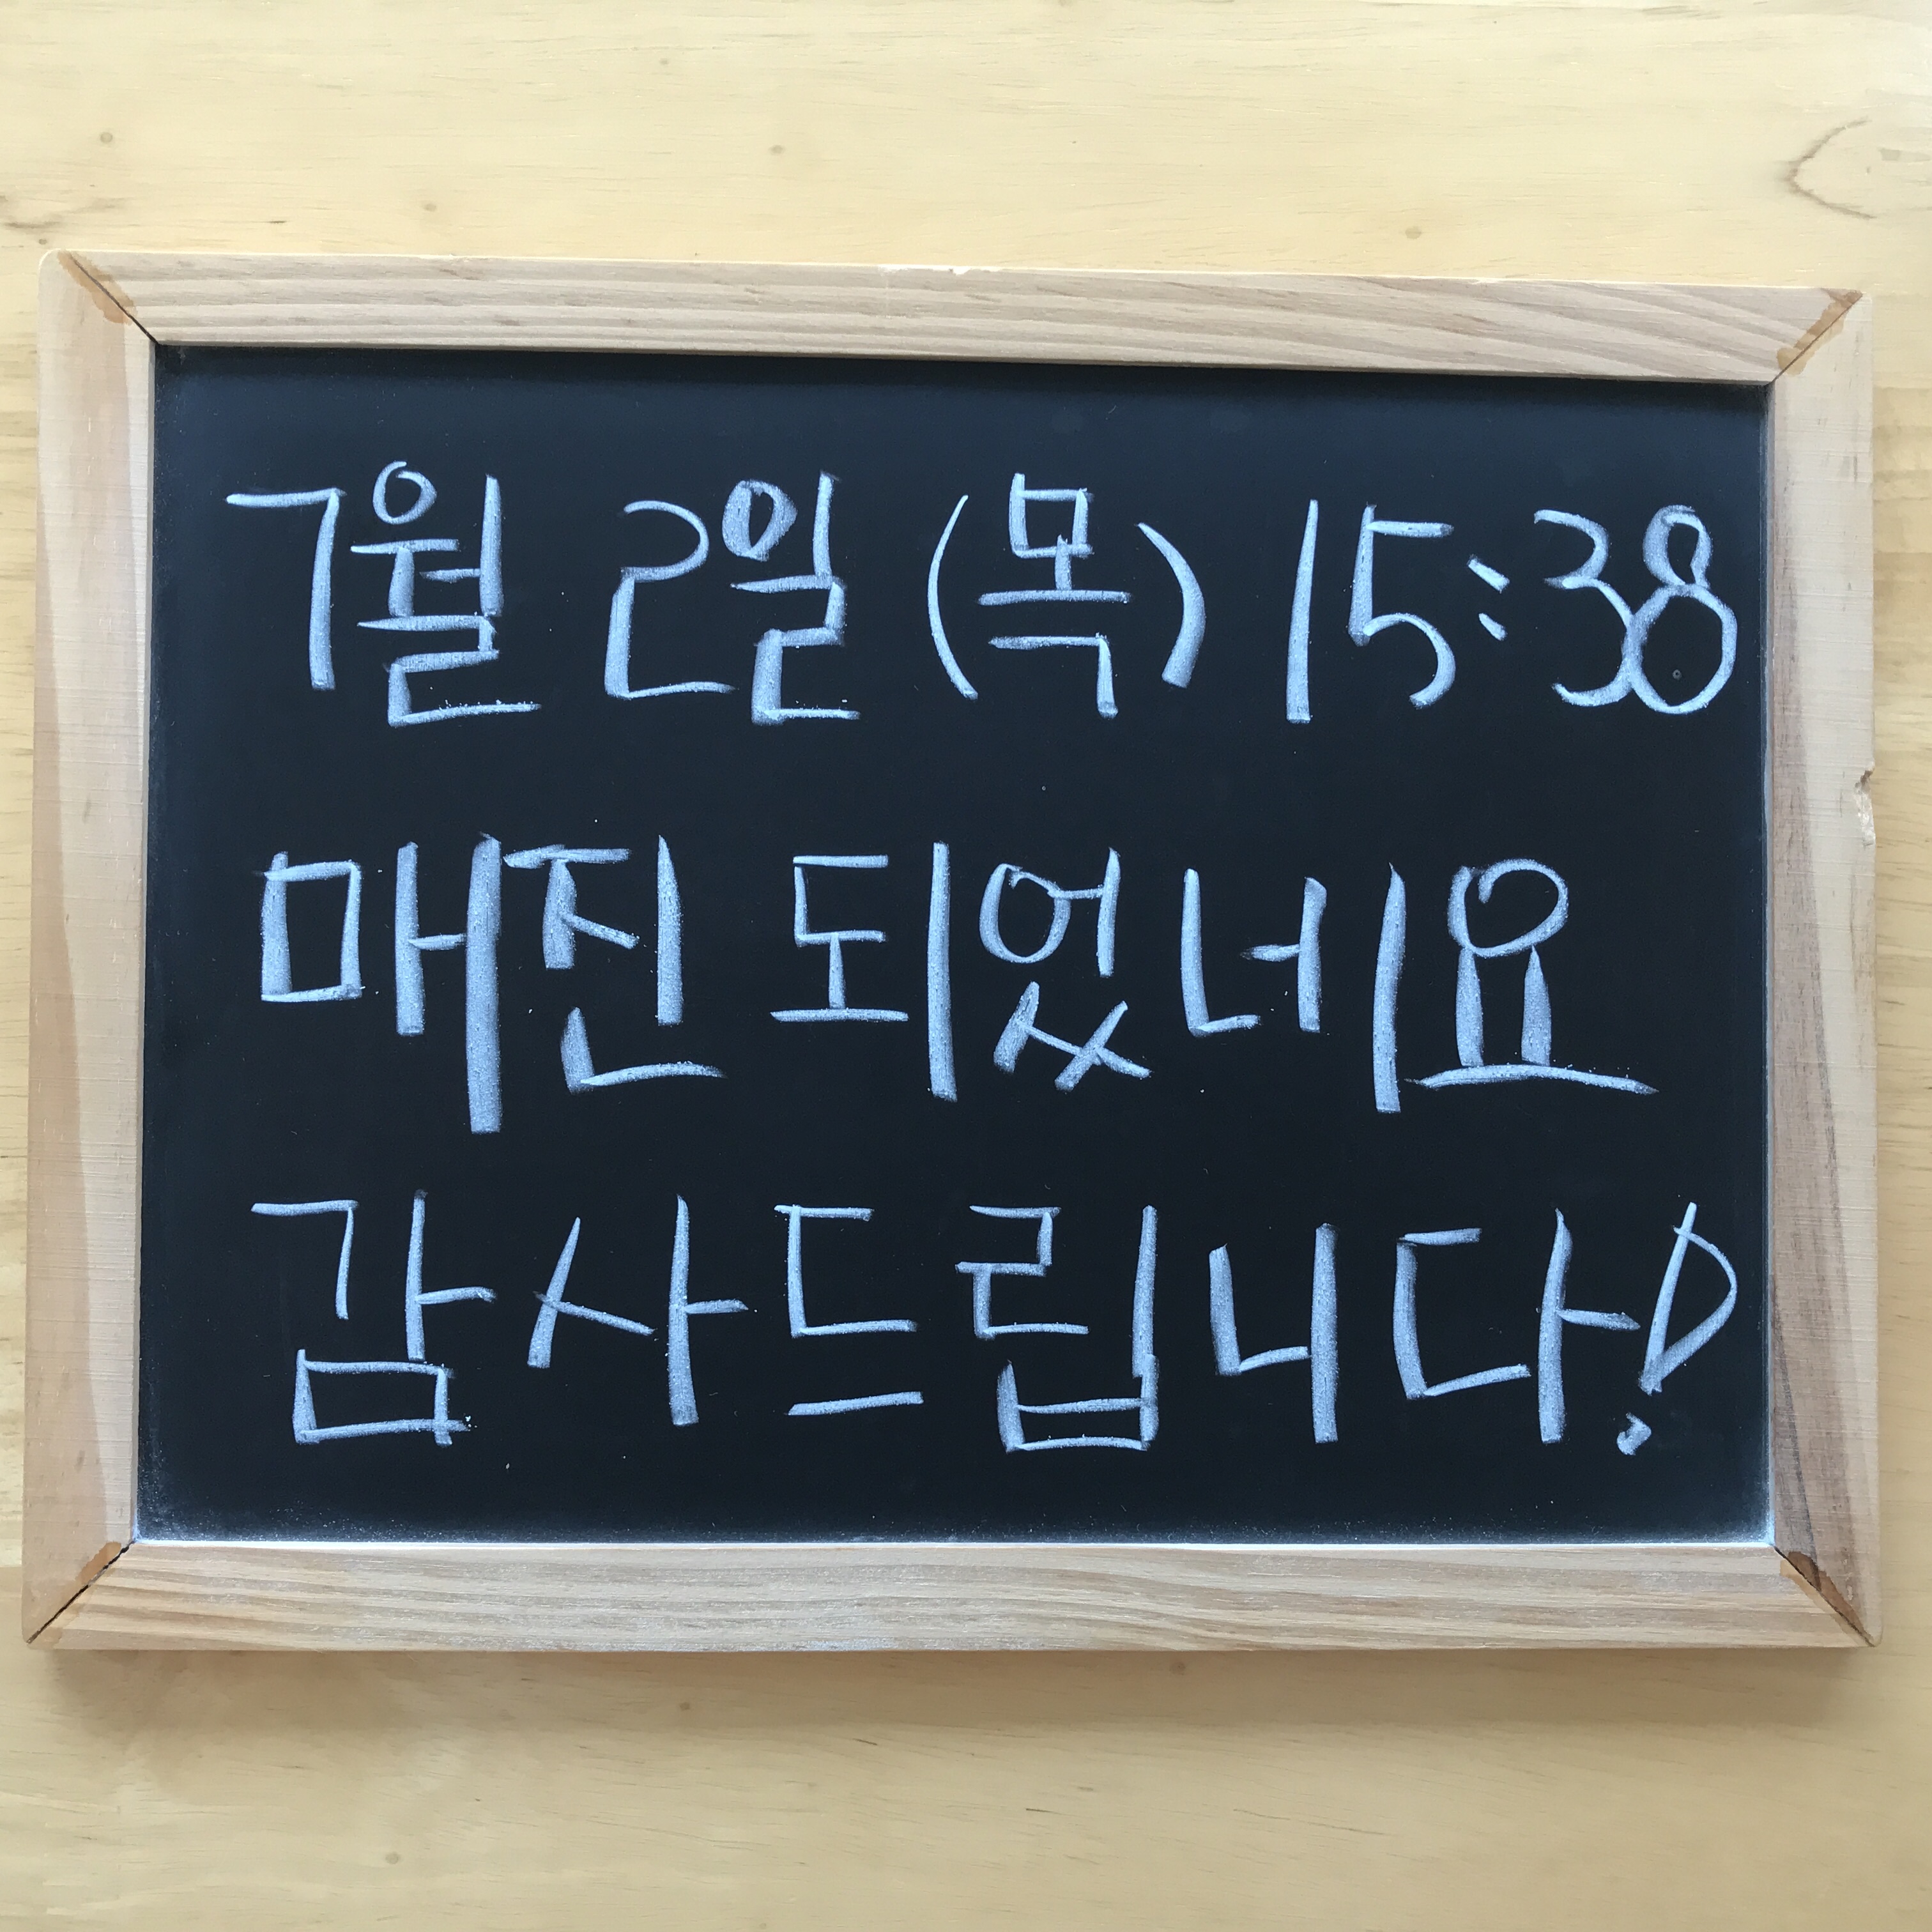 7월 2일 (목) 15:38
매진 되었네요
감사드립니다!